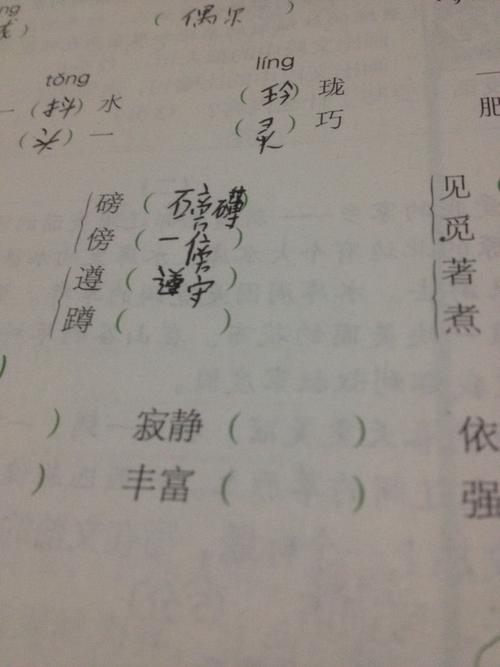 ng
（偶尔 ）
tǒng líng
一（抖）水 （玲）珑 肥
（ ）一 （灵）巧
磅（磅礴） 见
傍（一傍） 觅
遵（遵守） 著
蹲（ ） 煮
） 寂静（ ） 依
） 丰富（ ） 强